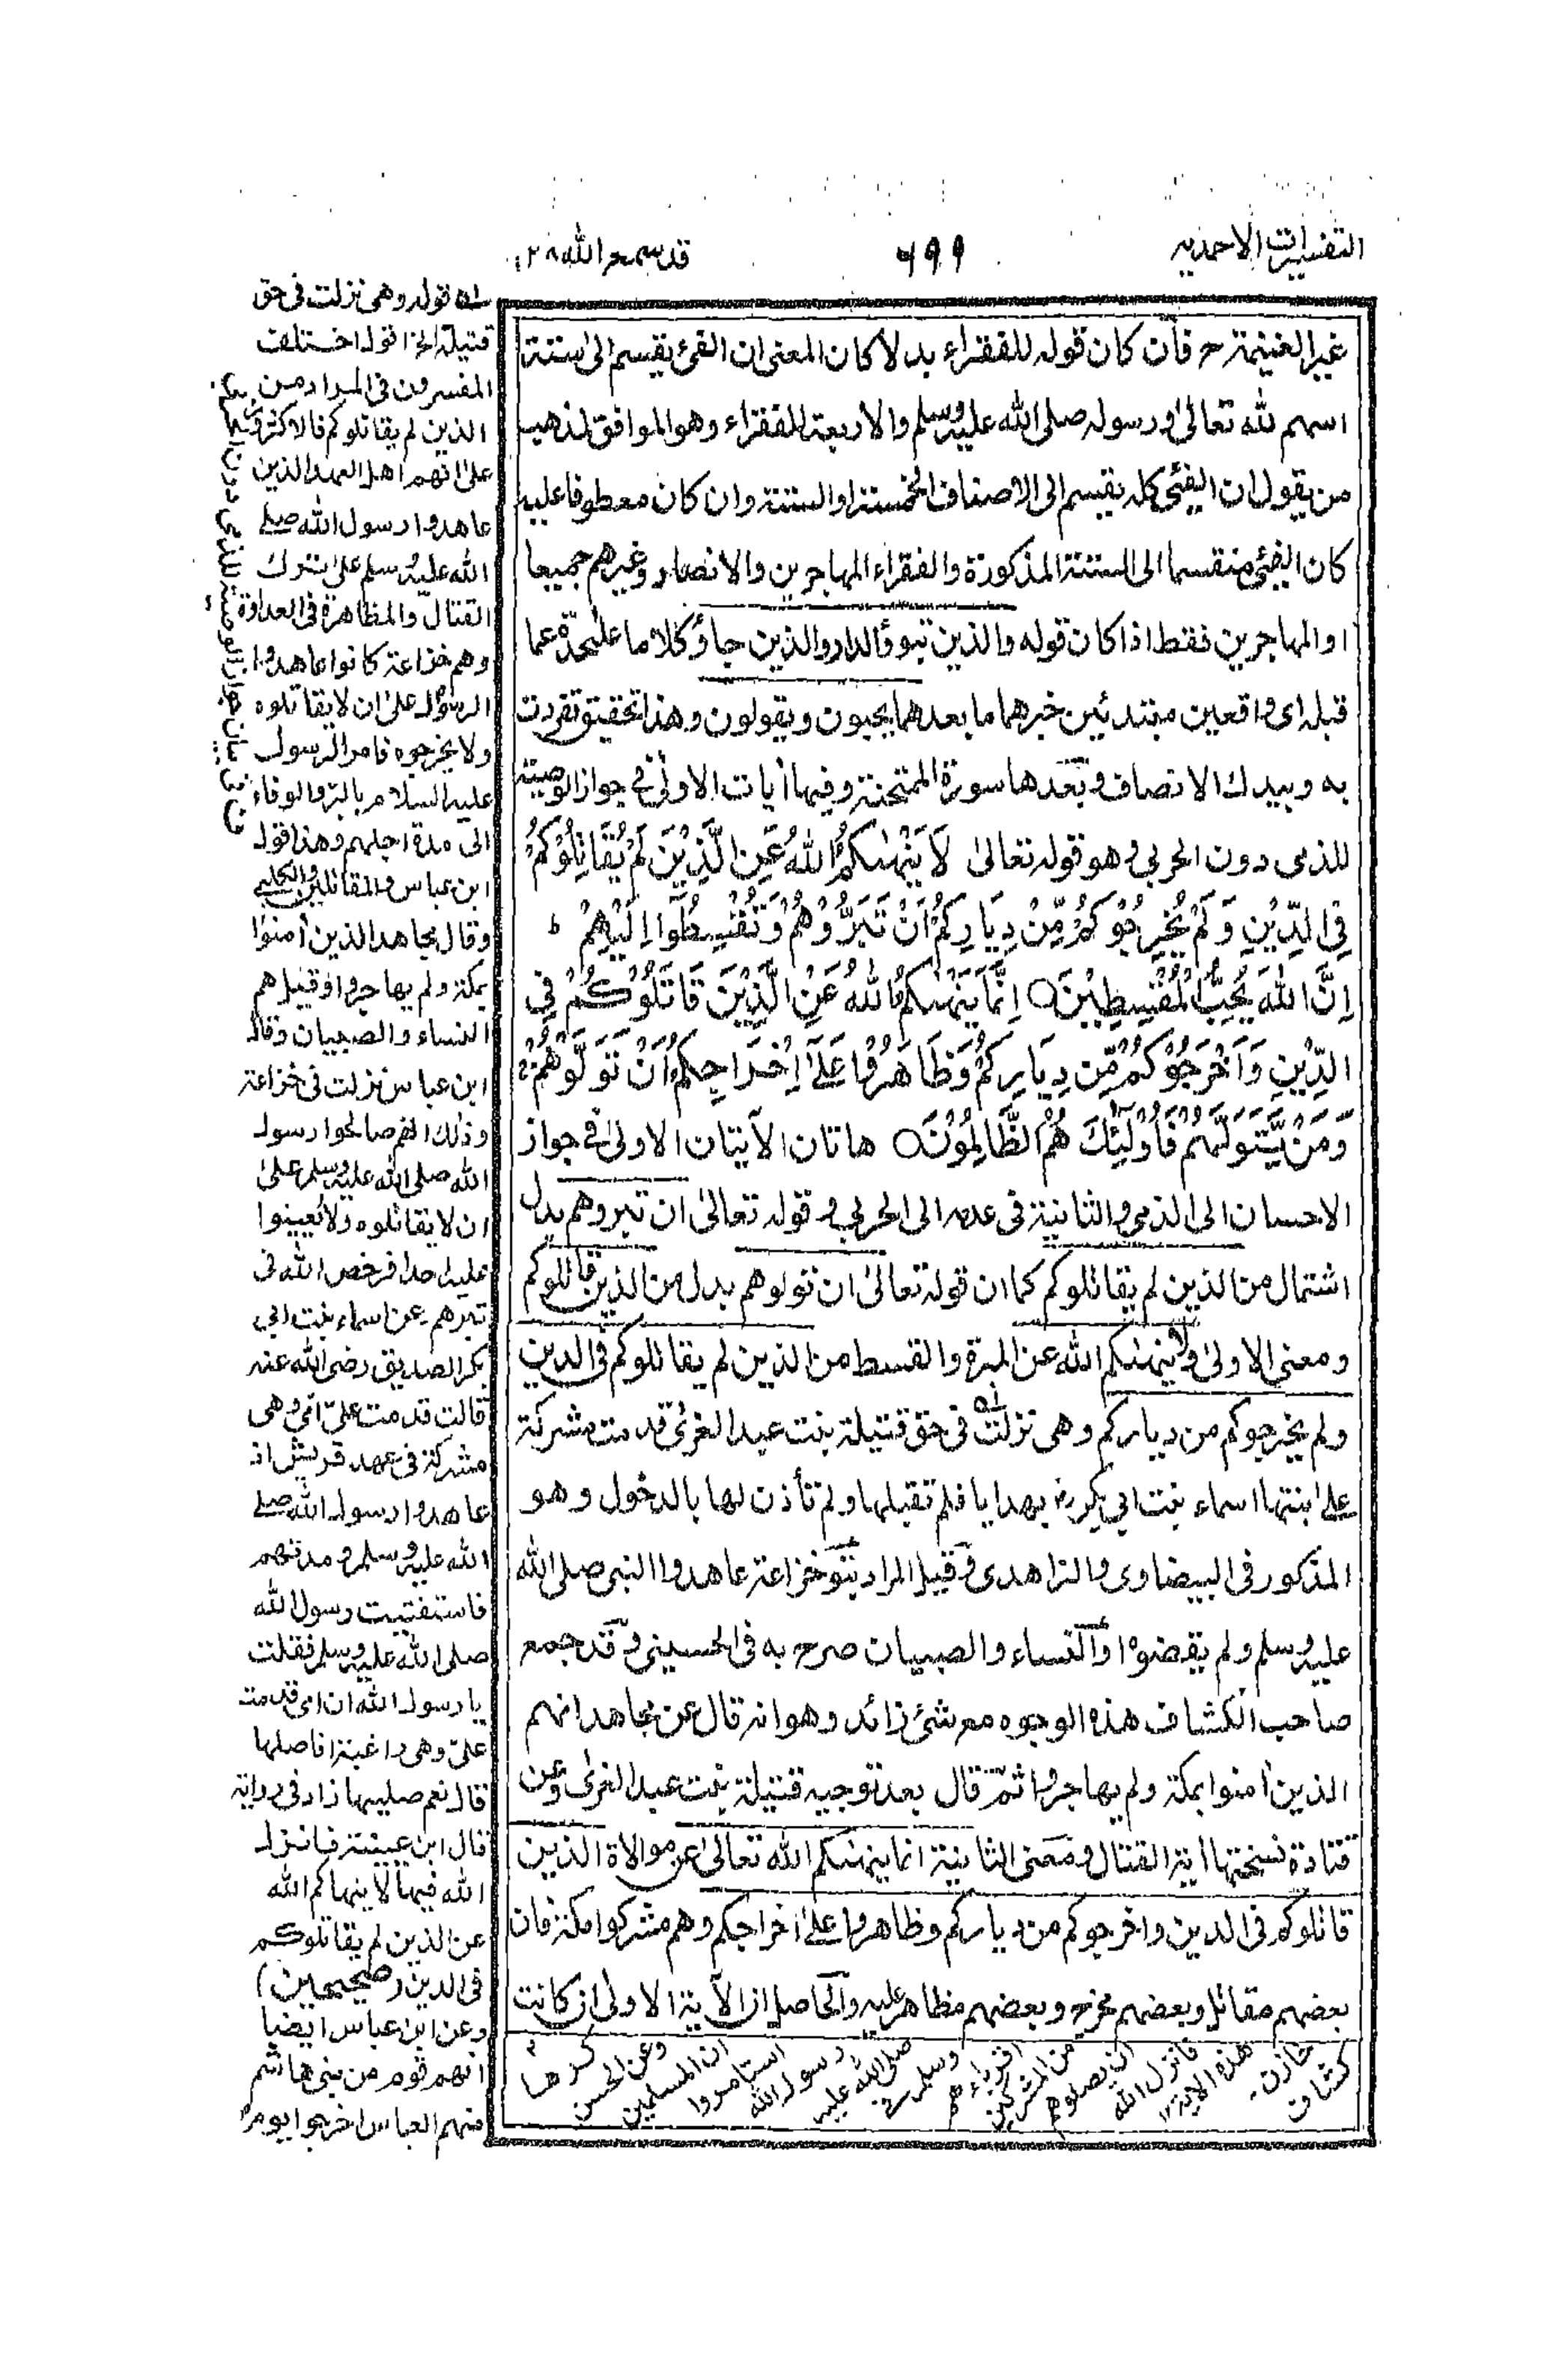 التفسيرات الاحمديه
٦٩٩
قد سمع الله ٢٨
غير الغنيمة ح فان كان قوله للفقراء بدلا كان المعنى ان الفئ يقسم الى ستة
اسهم لله تعالى ورسوله صلى الله عليه وسلم والاربعة للفقراء وهو الموافق لمذهب
من يقول ان الفئ كله يقسم الى الاصناف الخمسة او الستة وان كان معطوفا عليه
كان الفئ منقسما الى الستة المذكورة والفقراء المهاجرين والانصار وغيرهم جميعا
او المهاجرين فقط اذا كان قوله والذين تبوؤ الدار والذين جاؤ كلاما علىحدة عما
قبله اى واقعين مبتدئين خبرهما ما بعدهما يحبون ويقولون وهذا تحقيق تفردت
به وبيدك الانصاف وبعدها سورة الممتحنة وفيها أيات الاولى فى جواز الوصية
للذمى دون الحربى وهو قوله تعالىٰ لَا يَنْهٰىكُمُ اللّٰهُ عَنِ الَّذِيْنَ لَمْ يُقَاتِلُوْكُمْ
فِى الدِّيْنِ وَلَمْ يُخْرِجُوْكُمْ مِّنْ دِيَارِكُمْ اَنْ تَبَرُّوْهُمْ وَتُقْسِطُوْٓا اِلَيْهِمْ ط
اِنَّ اللّٰهَ يُحِبُّ الْمُقْسِطِيْنَ ○ اِنَّمَا يَنْهٰىكُمُ اللّٰهُ عَنِ الَّذِيْنَ قَاتَلُوْكُمْ فِى
الدِّيْنِ وَاَخْرَجُوْكُمْ مِّنْ دِيَارِكُمْ وَظَاهَرُوْا عَلٰٓى اِخْرَاجِكُمْ اَنْ تَوَلَّوْهُمْ ج
وَمَنْ يَّتَوَلَّهُمْ فَاُولٰٓئِكَ هُمُ الظّٰالِمُوْنَ ○ هاتان الآيتان الاولىٰ فى جواز
الاحسان الى الذمى والثانية فى عدمه الى الحربى وقوله تعالىٰ ان تبروهم بدل
اشتمال من الذين لم يقاتلوكم كما ان قوله تعالىٰ ان تولوهم بدل من الذين قاتلوكم
ومعنى الاولىٰ ولا ينهىٰكم الله عن المبرة والقسط من الذين لم يقاتلوكم فى الدين
ولم يخرجوكم من دياركم وهى نزلت فى حق قتيلة بنت عبد العزى قدمت مشركة
على ابنتها اسماء بنت ابى بكر رض بهدايا فلم تقبلها ولم تأذن لها بالدخول وهو
المذكور فى البيضاوى والزاهدى وقيل المراد بنو خزاعة عاهدوا النبى صلى الله
عليه وسلم ولم يقضوه او النساء والصبيان صرح به فى الحسينى وقد جمع
صاحب الكشاف هذه الوجوه مع شئ زائد وهو انه قال عن مجاهد انهم
الذين أمنوا بمكة ولم يهاجروا ثم قال بعد توجيه قتيلة بنت عبد العزى وعن
قتادة نسختها أية القتال ومعنى الثانية انما ينهىٰكم الله تعالىٰ عن موالاة الذين
قاتلوكم فى الدين واخرجوكم من دياركم وظاهروا على اخراجكم وهم مشركوا مكة فان
بعضهم مقاتل وبعضهم مخرج وبعضهم مظاهر عليه والحاصل ان الآية الاولى ان كانت
قوله وهى نزلت فى حق
قتيلة الخ اقول اختلف
المفسرون فى المراد من
الذين لم يقاتلوكم فالاكثرون
على انهم اهل العهد الذين
عاهدوا رسول الله صلى
الله عليه وسلم على ترك
القتال والمظاهرة فى العداوة
وهم خزاعة كانوا عاهدوا
الرسول على ان لا يقاتلوه
ولا يخرجوه فامر الرسول
عليه السلام بالبر والوفاء
الى مدة اجلهم وهذا قول
ابن عباس والمقاتلين والكلبى
وقال مجاهد الذين أمنوا
بمكة ولم يهاجروا وقيل هم
النساء والصبيان وقال
ابن عباس نزلت فى خزاعة
وذلك انهم صالحوا رسول
الله صلى الله عليه وسلم على
ان لا يقاتلوه ولا يعينوا
عليه احدا فرخص الله فى
تبرهم وعن اسماء بنت ابى
بكر الصديق رضى الله عنه
قالت قدمت علىّ امى وهى
مشركة فى عهد قريش اذ
عاهدوا رسول الله صلى
الله عليه وسلم ومدتهم
فاستفتيت رسول الله
صلى الله عليه وسلم فقلت
يا رسول الله ان امى قدمت
علىّ وهى راغبة افاصلها
قال نعم صليها زاد فى رواية
قال ابن عيينة فانزل
الله فيها لا ينهاكم الله
عن الذين لم يقاتلوكم
فى الدين (صحيحين)
وعن ابن عباس ايضا
انهم قوم من بنى هاشم
منهم العباس اخرجوا يوم
كرها
وعن الحسن
ان المسلمين
استامروا
رسول الله
صلى الله عليه
وسلم فى
اقرباءهم
من المشركين
ان يصلوهم
فانزل الله
هذه الآية ١٢
خازن -
كشاف